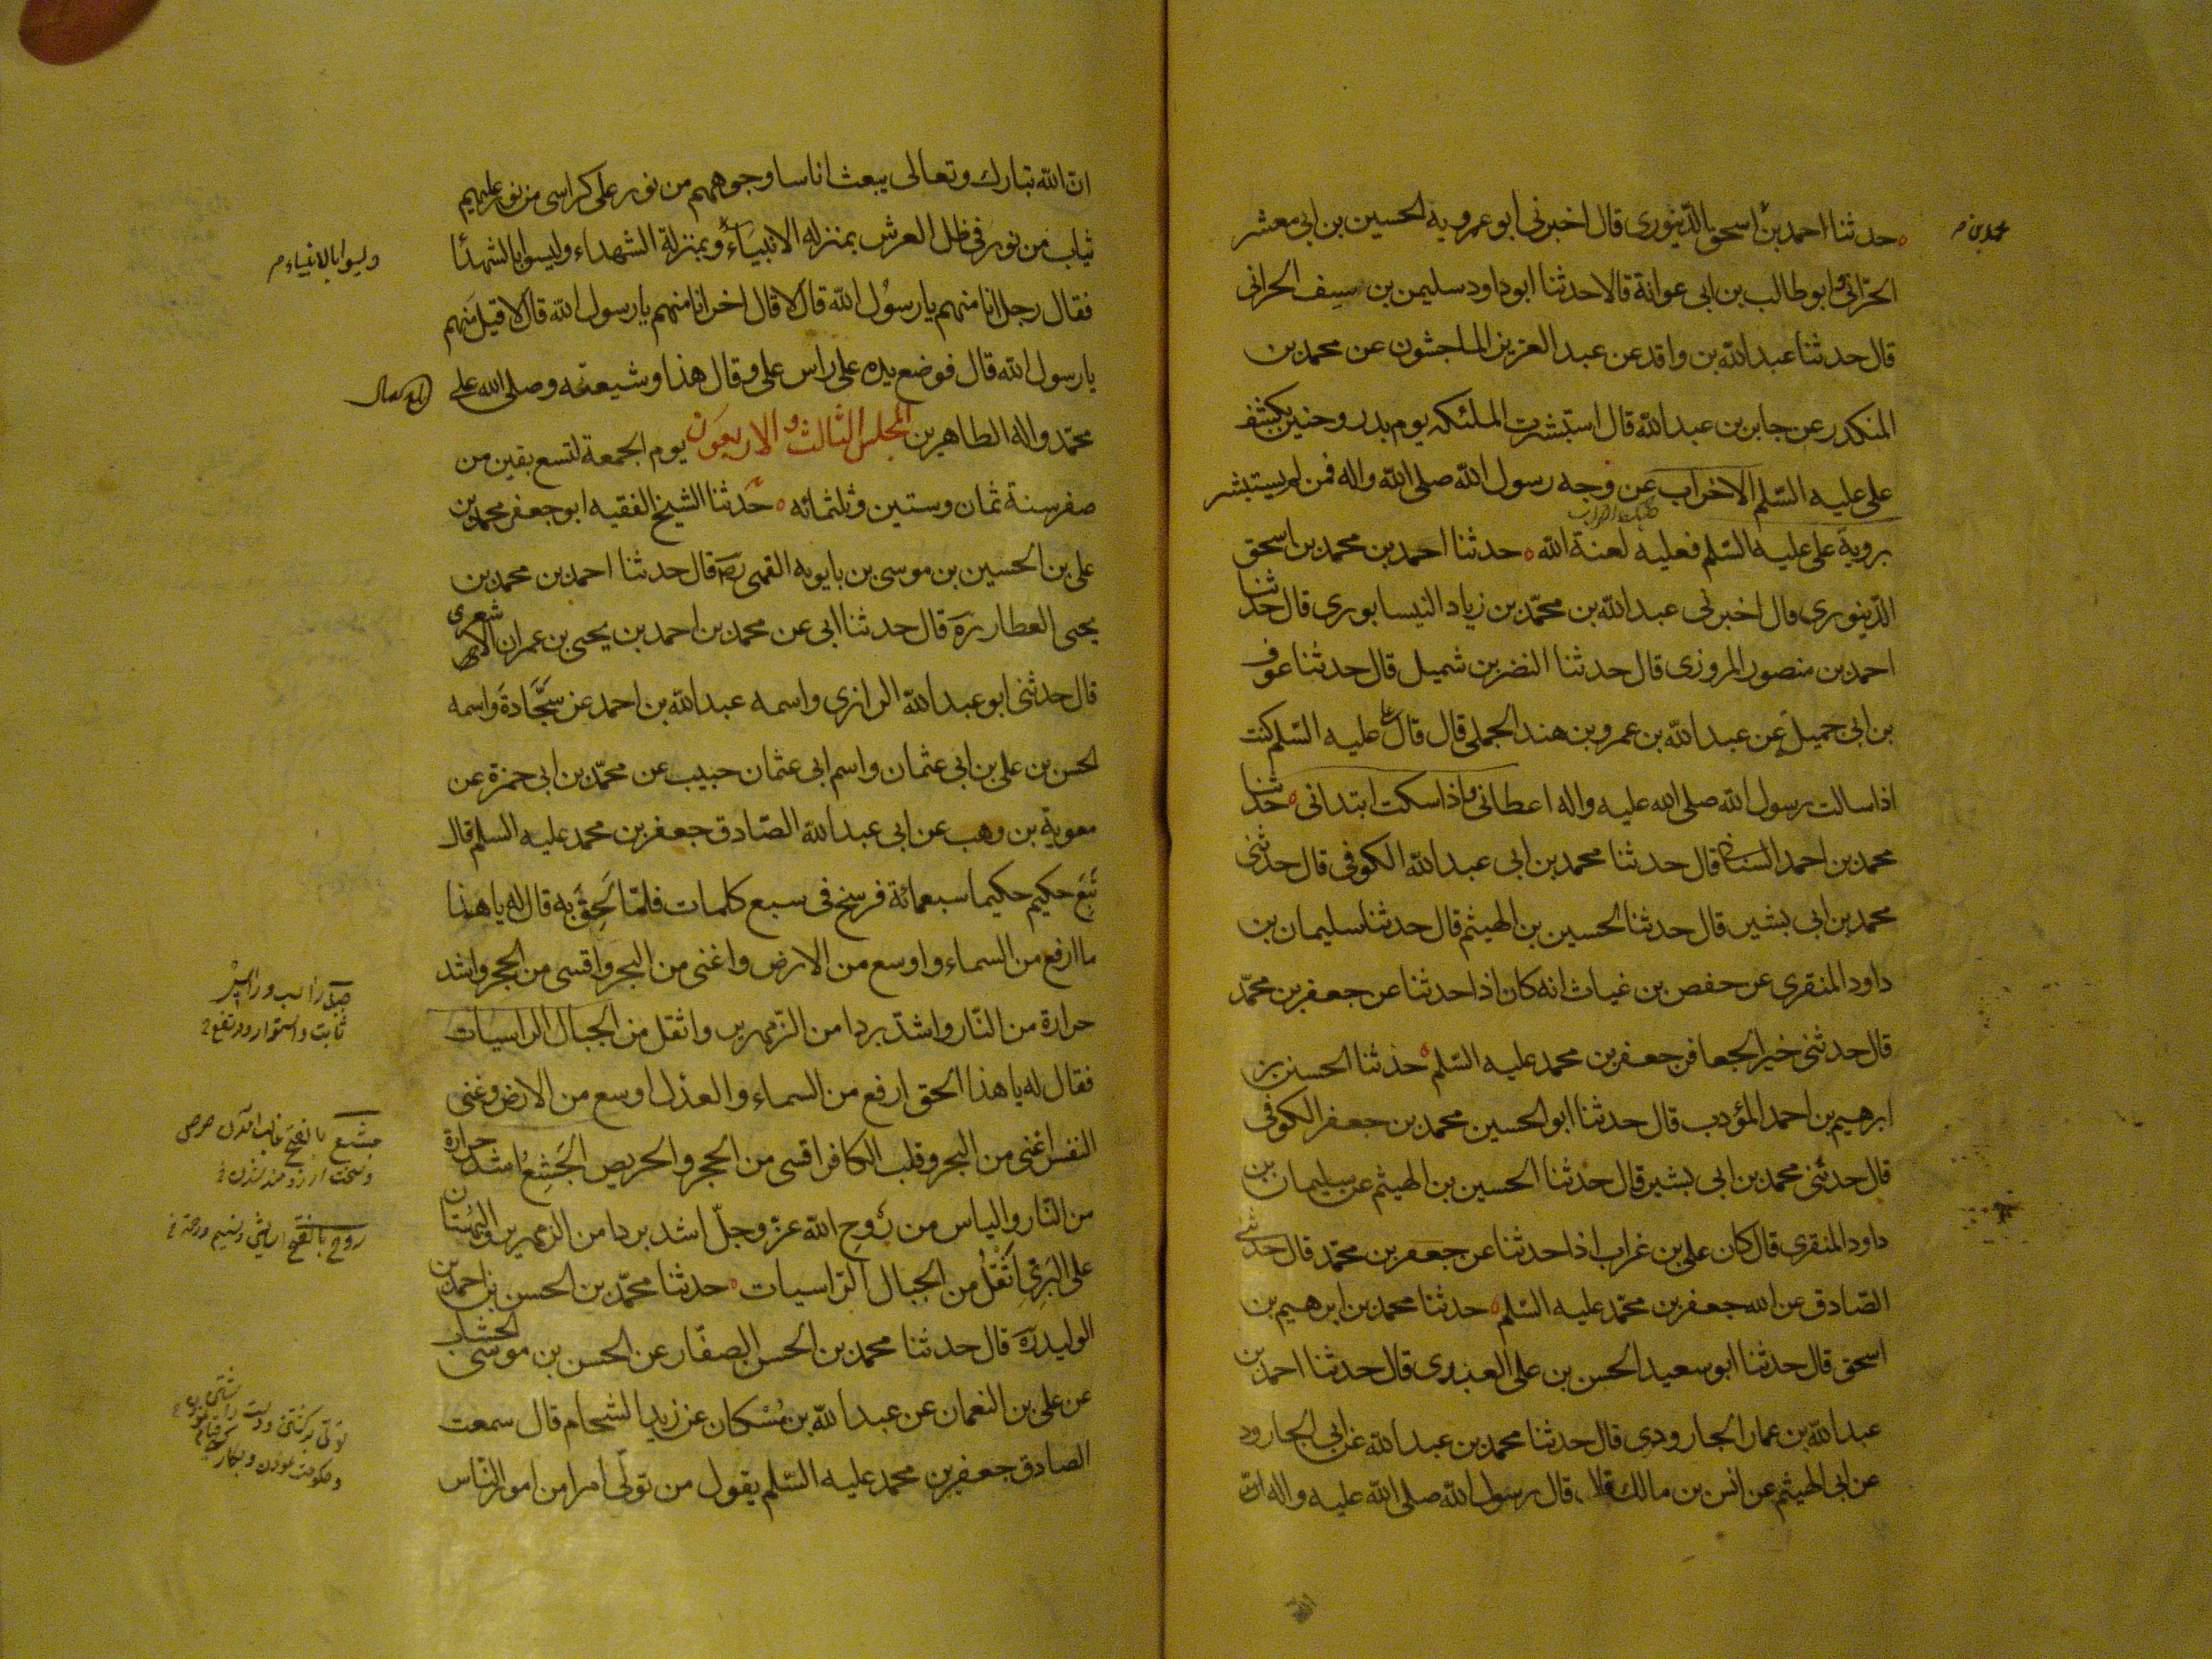 حدثنا احمد بن اسحق الدينوری قال اخبرنی ابو عمروبه الحسين بن ابی معشر
محمد بن م
الحرانی وابو طالب بن ابی عوانة قالا حدثنا ابو داود سليمن بن سيف الحرانی
قال حدثنا عبد الله بن واقد عن عبد العزيز الماجشون عن محمد بن
المنكدر عن جابر بن عبد الله قال استبشرت الملئكه يوم بدر وحنين بكشف
علی عليه السّلم الاخراب عن وجه رسول الله صلی الله واله فمن لم يستبشر
بروية علی عليه السّلم فعليه لعنة الله ٥ حدثنا احمد بن محمد بن اسحق
الدّينوری قال اخبرنی عبد الله بن محمّد بن زياد النيسابوری قال حدثنا
احمد بن منصور المروزی قال حدثنا النضر بن شميل قال حدثنا عوف
بن ابی جميل عن عبد الله بن عمرو بن هند الجملی قال قال علی عليه السّلم كنت
اذا سالت رسول الله صلی الله عليه واله اعطانی واذا سكت ابتدانی ٥ حدثنا
محمد بن احمد السنانی قال حدثنا محمد بن ابی عبد الله الكوفی قال حدثنی
محمد بن ابی بشير قال حدثنا الحسين بن الهيثم قال حدثنا سليمان بن
داود المنقری عن حفص بن غياث انه كان اذا حدثنا عن جعفر بن محمّد
قال حدثنی خير الجعافر جعفر بن محمد عليه السّلم ٥ حدثنا الحسين بن
ابرهيم بن احمد المؤدب قال حدثنا ابو الحسين محمد بن جعفر الكوفی
قال حدثنی محمد بن ابی بشير قال حدثنا الحسين بن الهيثم عن سليمان بن
داود المنقری قال كان علی بن غراب اذا حدثنا عن جعفر بن محمّد قال حدثنی
الصّادق عن الله جعفر بن محمّد عليه السّلم ٥ حدثنا محمد بن ابرهيم بن
اسحق قال حدثنا ابو سعيد الحسن بن علی العدوی قال حدثنا احمد بن
عبد الله بن عمار الجارودی قال حدثنا محمد بن عبد الله عن ابی الجارود
عن ابی الهيثم عن انس بن مالك قال قال رسول الله صلی الله عليه واله
انّ الله تبارك وتعالی يبعث اناسا وجوههم من نور علی كراسی من نور عليهم
ثياب من نور فی ظل العرش بمنزلة الانبياء وبمنزلة الشهداء وليسوا بالشهدا
وليسوا بالانبياء م
فقال رجل انا منهم يا رسول الله قال لا قال اخر انا منهم يا رسول الله قال لا قيل منهم
يا رسول الله قال فوضع يده علی راس علی وقال هذا وشيعته وصلی الله علی
محمّد واله الطاهرين المجلس الثالث والاربعون يوم الجمعة لتسع بقين من
صفر سنة ثمان وستين وثلثمائه ٥ حدثنا الشيخ الفقيه ابو جعفر محمد بن
علی بن الحسين بن موسی بن بابويه القمی رضه قال حدثنا احمد بن محمد بن
يحيی العطار ره قال حدثنا ابی عن محمد بن احمد بن يحيی بن عمران الاشعری
قال حدثنی ابو عبد الله الرازی واسمه عبد الله بن احمد عن سجّادة واسمه
الحسن بن علی بن ابی عثمان واسم ابی عثمان حبيب عن محمّد بن ابی حمزة عن
معوية بن وهب عن ابی عبد الله الصّادق جعفر بن محمد عليه السلم قال
تَبِعَ حكيم حكيما سبعمائة فرسخ فی سبع كلمات فلمّا لَحِقَ به قال له يا هذا
ما ارفع من السماء واوسع من الارض واغنی من البحر واقسی من الحجر واشد
حرارة من النّار واشدّ بردا من الزّمهرير واثقل من الجبال الراسيات
فقال له يا هذا الحق ارفع من السماء والعدل اوسع من الارض وغنی
النفس اغنی من البحر وقلب الكافر اقسی من الحجر والحريص الجَشِعُ اشد حرارة
من النّار والياس من رَوحِ الله عزّ وجلّ اشد بردا من الزمهرير والبهتان
علی البَرِیِّ اَثقَلُ من الجبال الرّاسيات ٥ حدثنا محمّد بن الحسن بن احمد بن
الوليد ره قال حدثنا محمد بن الحسن الصفّار عن الحسن بن موسی الخشاب
عن علی بن النعمان عن عبد الله بن مُسْكان عن زيد الشحام قال سمعت
الصادق جعفر بن محمد عليه السّلم يقول من تولّی امرا من امور النّاس